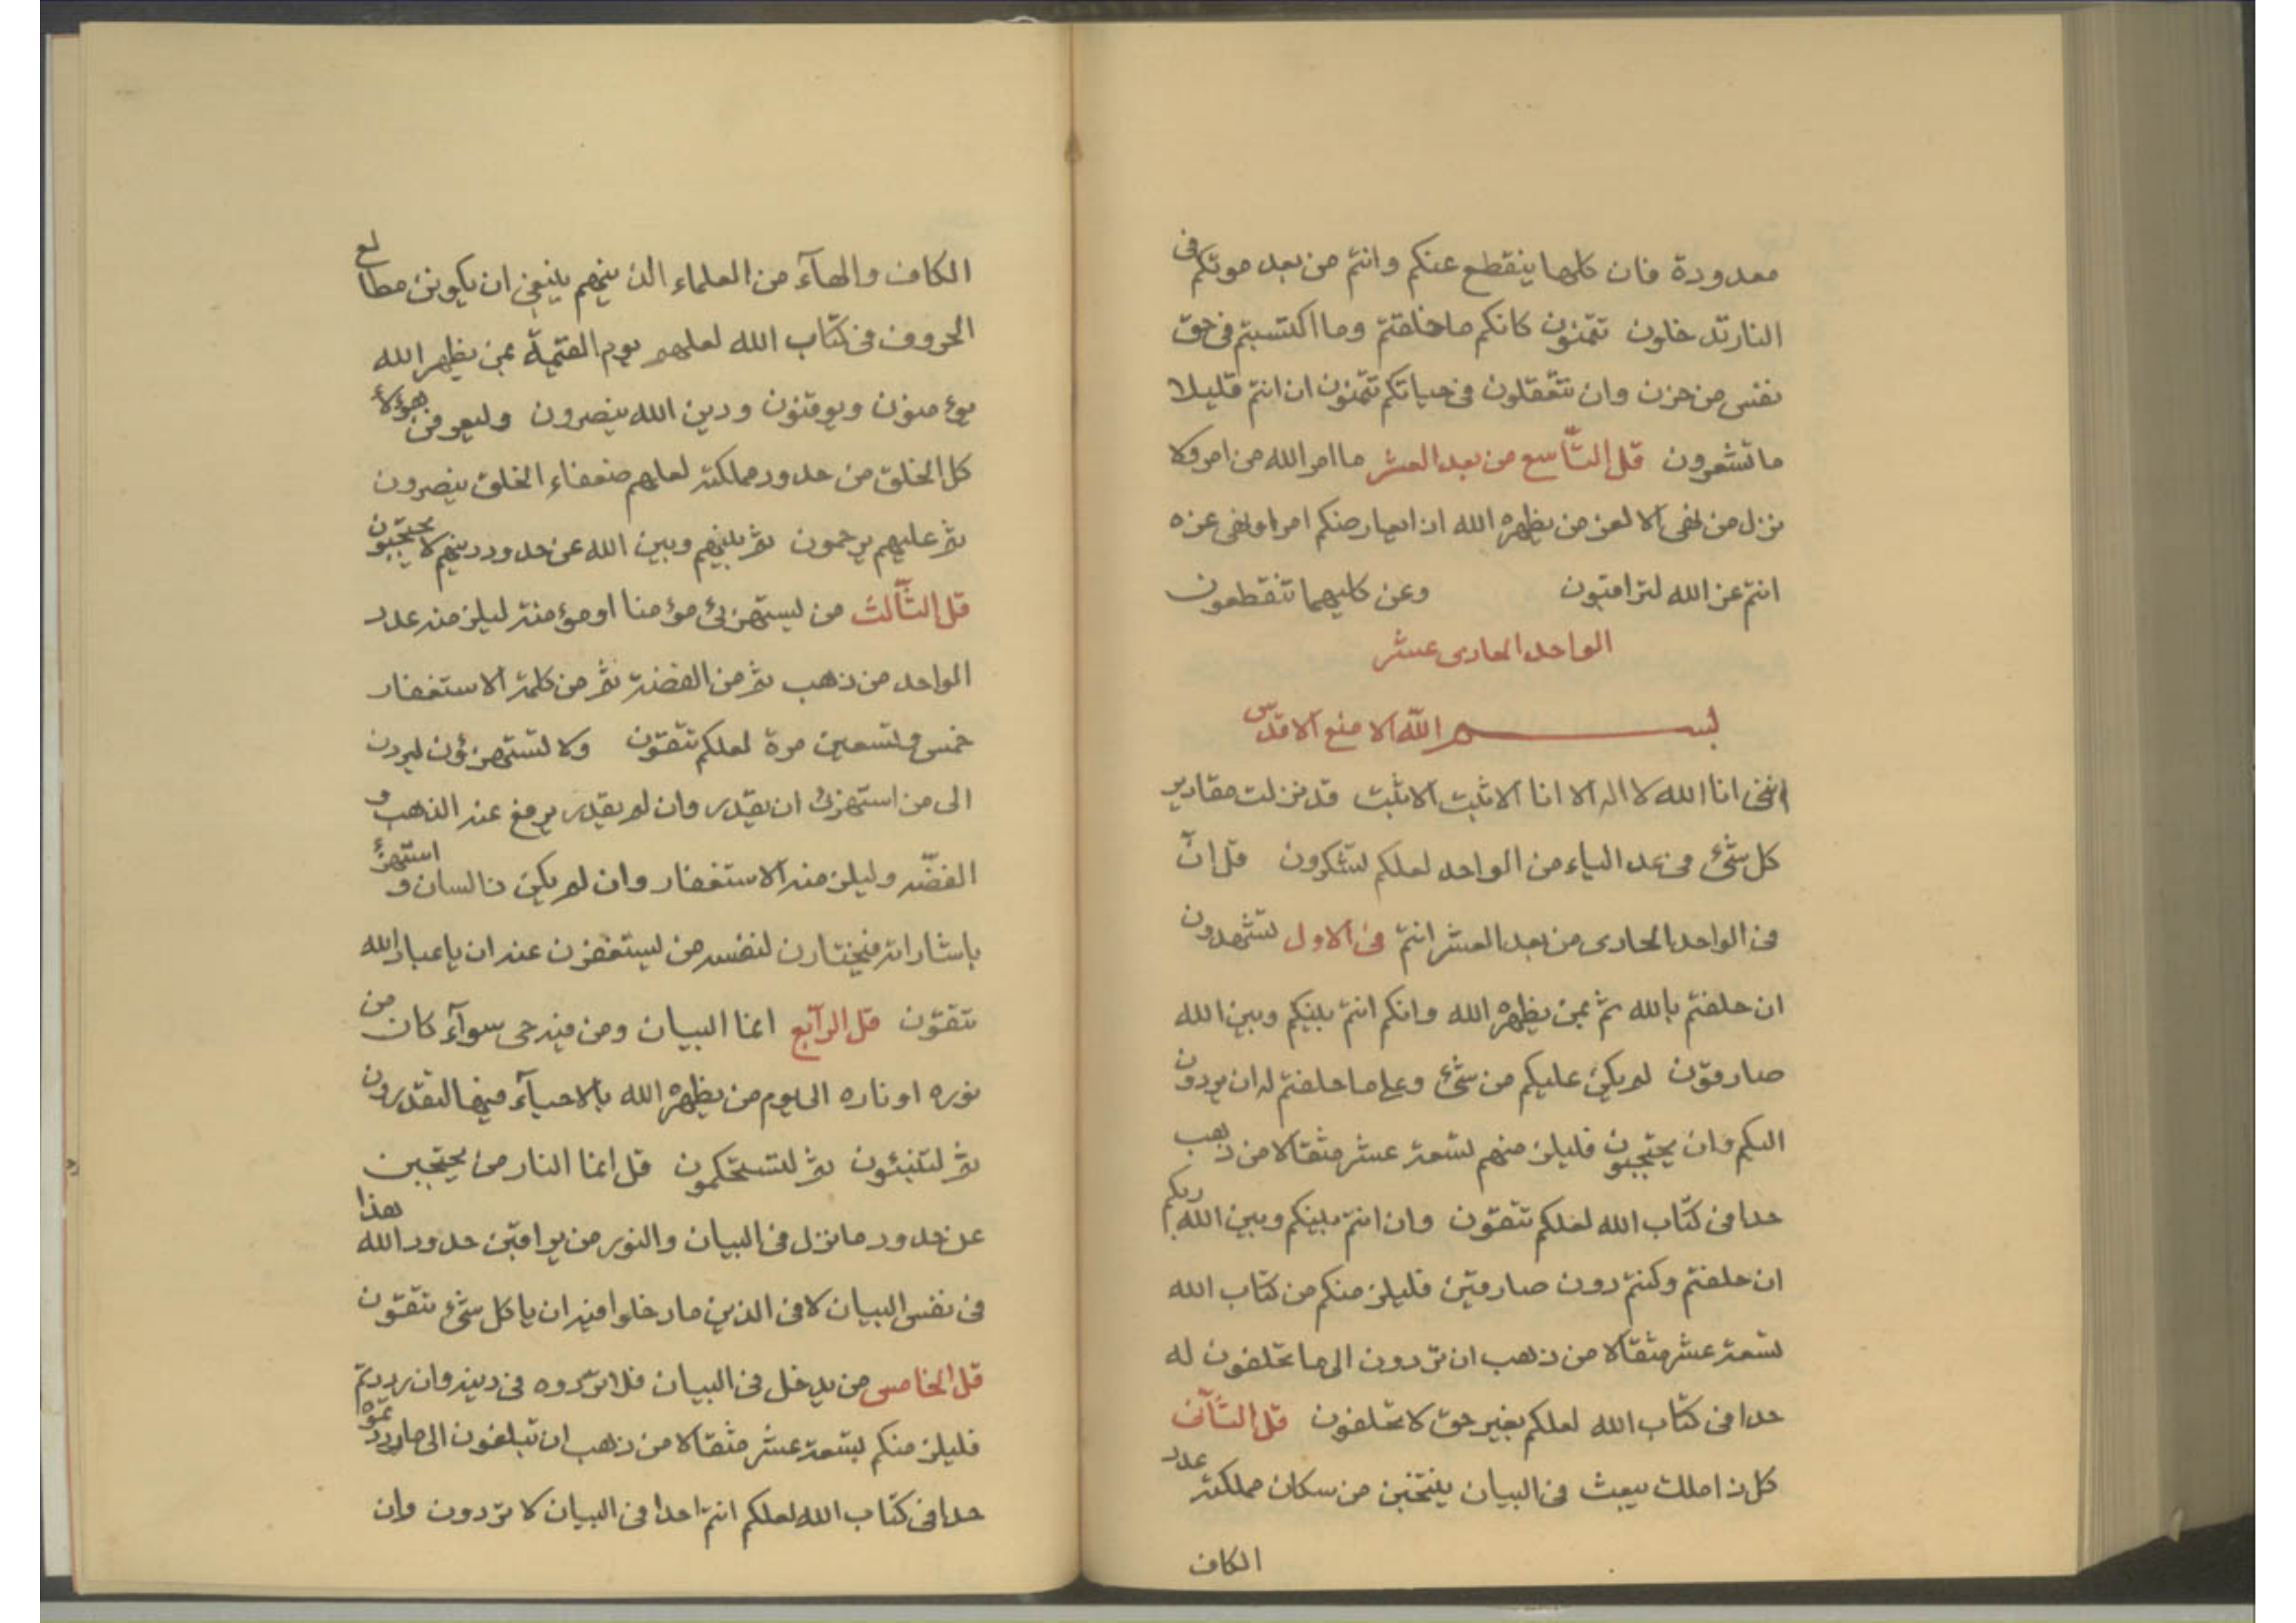 معدودة فان كلها ينقطع عنكم وانتم من بعد موتكم فى
النار تدخلون تتمنون كانكم ما خلقتم وما اكتسبتم فى حق
نفس من حزن وان تتعقلون فى حياتكم تتمنون ان انتم قليلا
ما تشعرون قل التّاسع من بعد العشر ما امر الله من امر ولا
نزل من نهى الا لعز من يظهره الله ان امر او نهى عزه
انتم عز الله لتراقبون وعن كليهما تنقطعون
الواحد الحادى عشر
بسم الله الامنع الاقدس
اننى انا الله لا اله الا انا الاثبت الاثبت قد نزلت مقادير
كل شئ فى عدد الياء من الواحد لعلكم تشكرون قل انّ
فى الواحد الحادى من بعد العشر انتم فى الاول لتشهدون
ان حلفتم بالله ثم بمن يظهره الله وانكم انتم بينكم وبين الله
صادقون لم يكن عليكم من شئ وعلى ما حلفتم له ان يردون
اليكم وان يحتجبون فليلزمنهم تسعة عشر مثقالا من ذهب
حدا فى كتاب الله لعلكم تتقون وان انتم بينكم وبين الله ربكم
ان حلفتم وكنتم دون صادقين فليلزمنكم من كتاب الله
تسعة عشر مثقالا من ذهب ان تردون الى ما تحلفون له
حدا فى كتاب الله لعلكم بغير حق لا تحلفون قل الثّانى
كل ذا ملك يبعث فى البيان ينتخبن من سكان مملكته عدد
الكاف
الكاف والهآء من العلماء الذينهم ينبغى ان يكونن مطالع
الحروف فى كتاب الله لعلهم يوم القيمة بمن يظهر الله
يؤمنون ويوقنون ودين الله ينصرون وليعرفن هؤلاء
كل الخلق من حدود مملكته لعلهم ضعفاء الخلق ينصرون
ثم عليهم يرحمون ثم بينهم وبين الله عن حدود دينهم لا يحتجبون
قل الثّالث من يستهزئ مؤمنا او مؤمنة ليلزمنه عدد
الواحد من ذهب ثم من الفضة ثم من كلمة الاستغفار
خمس وتسعين مرة لعلكم تتقون ولا تستهزؤن ليردن
الى من استهزئ ان يقدر وان لم يقدر يرفع عنه الذهب و
الفضّه وليلزمنه الاستغفار وان لم يكن ذا لسان و استهزئ
باشاراته فيختارن لنفسه من يستغفرن عنه ان يا عباد الله
تتقون قل الرّابع انما البيان ومن فيه حى سوآء كان من
نوره او ناره الى يوم من يظهره الله بالاحيآء فيها لتقدرون
ثم لتنبئون ثم لتستحكمون قل انما النار من يحتجبن
عن حدود ما نزل فى البيان والنور من يراقبن حدود الله هذا
فى نفس البيان لا فى الذين ما دخلوا فيه ان يا كل شئ تتقون
قل الخامس من يدخل فى البيان فلا تردوه فى دينه وان رددتم
فليلزمنكم تسعة عشر مثقالا من ذهب ان تبلغون الى ما رددتموه
حدا فى كتاب الله لعلكم انتم احدا فى البيان لا تردون وان